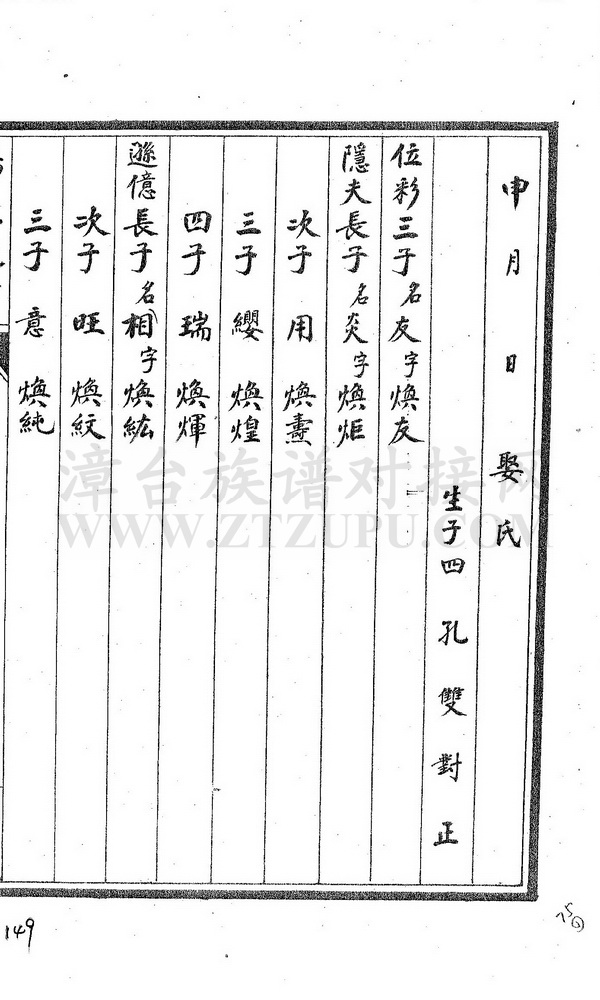 申月日娶氏
生子四 孔 雙 對 正
位彩三子名友字煥友
隱夫長子名炎字煥炬
次子 用 煥燾
三子 纓 煥煌
四子 瑞 煥煇
遜億長子名相字煥紘
次子 旺 煥紋
三子 意 煥純
漳台族谱对接网
WWW.ZTZUPU.COM
149
75